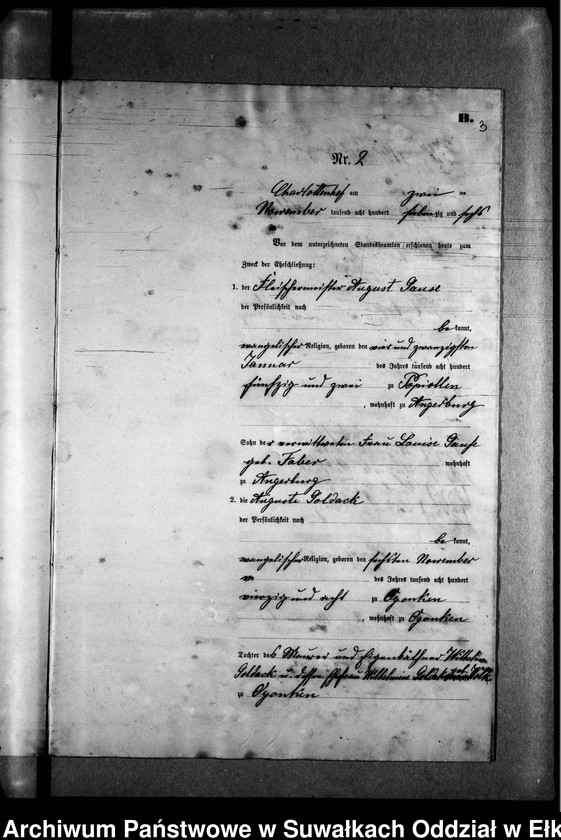 B.
3
Nr. 2
Charlottenhof am zwei ten
November tausend acht hundert siebenzig und sechs
Vor dem unterzeichneten Standesbeamten erschienen heute zum
Zweck der Eheschließung:
1. der Fleischermeister August Gause
der Persönlichkeit nach
bekannt,
evangelischer Religion, geboren den vier und zwanzigsten
Januar des Jahres tausend acht hundert
fünfzig und zwei zu Popiollen
, wohnhaft zu Angerburg
Sohn der verwittweten Frau Louise Gause
geb. Faber wohnhaft
zu Angerburg
2. die Auguste Goldack
der Persönlichkeit nach
bekannt,
evangelischer Religion, geboren den sechsten November
des Jahres tausend acht hundert
vierzig und acht zu Ogonken
, wohnhaft zu Ogonken
Tochter des Maurer und Eigenkäthner Wilhelm
Goldack u. dessen Ehefrau Wilhelmine Goldack
zu Ogonken
Archiwum Państwowe w Suwałkach Oddział w Ełk